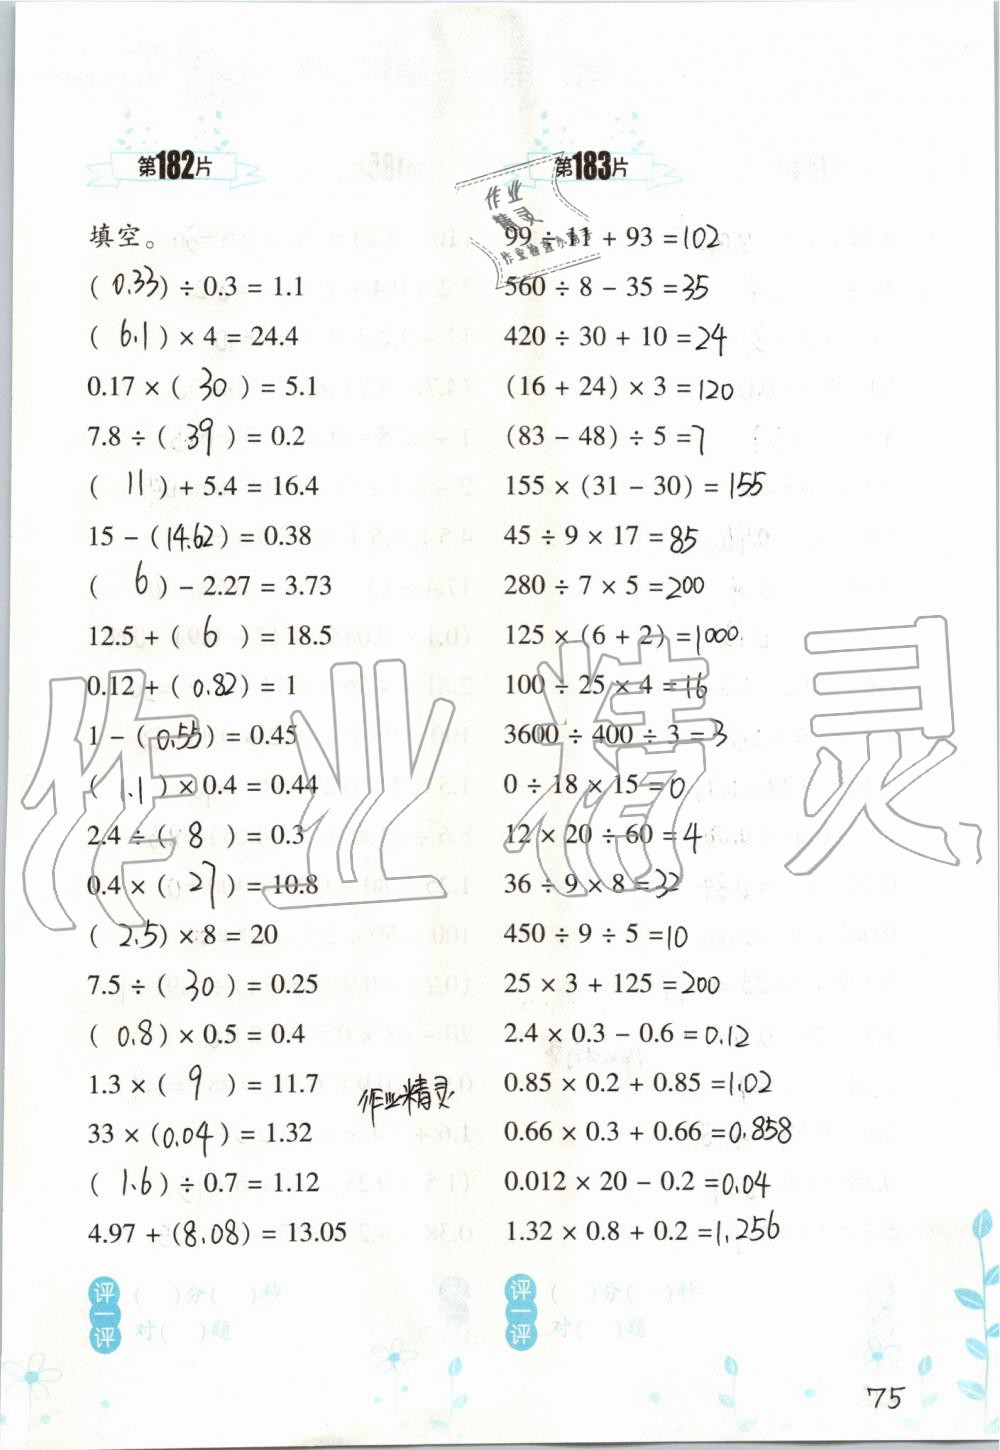 第182片
填空。
( 0.33 ) ÷ 0.3 = 1.1
( 6.1 ) × 4 = 24.4
0.17 × ( 30 ) = 5.1
7.8 ÷ ( 39 ) = 0.2
( 11 ) + 5.4 = 16.4
15 - ( 14.62 ) = 0.38
( 6 ) - 2.27 = 3.73
12.5 + ( 6 ) = 18.5
0.12 + ( 0.82 ) = 1
1 - ( 0.55 ) = 0.45
( 1.1 ) × 0.4 = 0.44
2.4 ÷ ( 8 ) = 0.3
0.4 × ( 27 ) = 10.8
( 2.5 ) × 8 = 20
7.5 ÷ ( 30 ) = 0.25
( 0.8 ) × 0.5 = 0.4
1.3 × ( 9 ) = 11.7
33 × ( 0.04 ) = 1.32
( 1.6 ) ÷ 0.7 = 1.12
4.97 + ( 8.08 ) = 13.05
评一评
( )分( )秒
对( )题
第183片
99 ÷ 11 + 93 = 102
560 ÷ 8 - 35 = 35
420 ÷ 30 + 10 = 24
(16 + 24) × 3 = 120
(83 - 48) ÷ 5 = 7
155 × (31 - 30) = 155
45 ÷ 9 × 17 = 85
280 ÷ 7 × 5 = 200
125 × (6 + 2) = 1000
100 ÷ 25 × 4 = 16
3600 ÷ 400 ÷ 3 = 3
0 ÷ 18 × 15 = 0
12 × 20 ÷ 60 = 4
36 ÷ 9 × 8 = 32
450 ÷ 9 ÷ 5 = 10
25 × 3 + 125 = 200
2.4 × 0.3 - 0.6 = 0.12
0.85 × 0.2 + 0.85 = 1.02
0.66 × 0.3 + 0.66 = 0.858
0.012 × 20 - 0.2 = 0.04
1.32 × 0.8 + 0.2 = 1.256
评一评
( )分( )秒
对( )题
作业
精灵
作业精灵
作业精灵
75